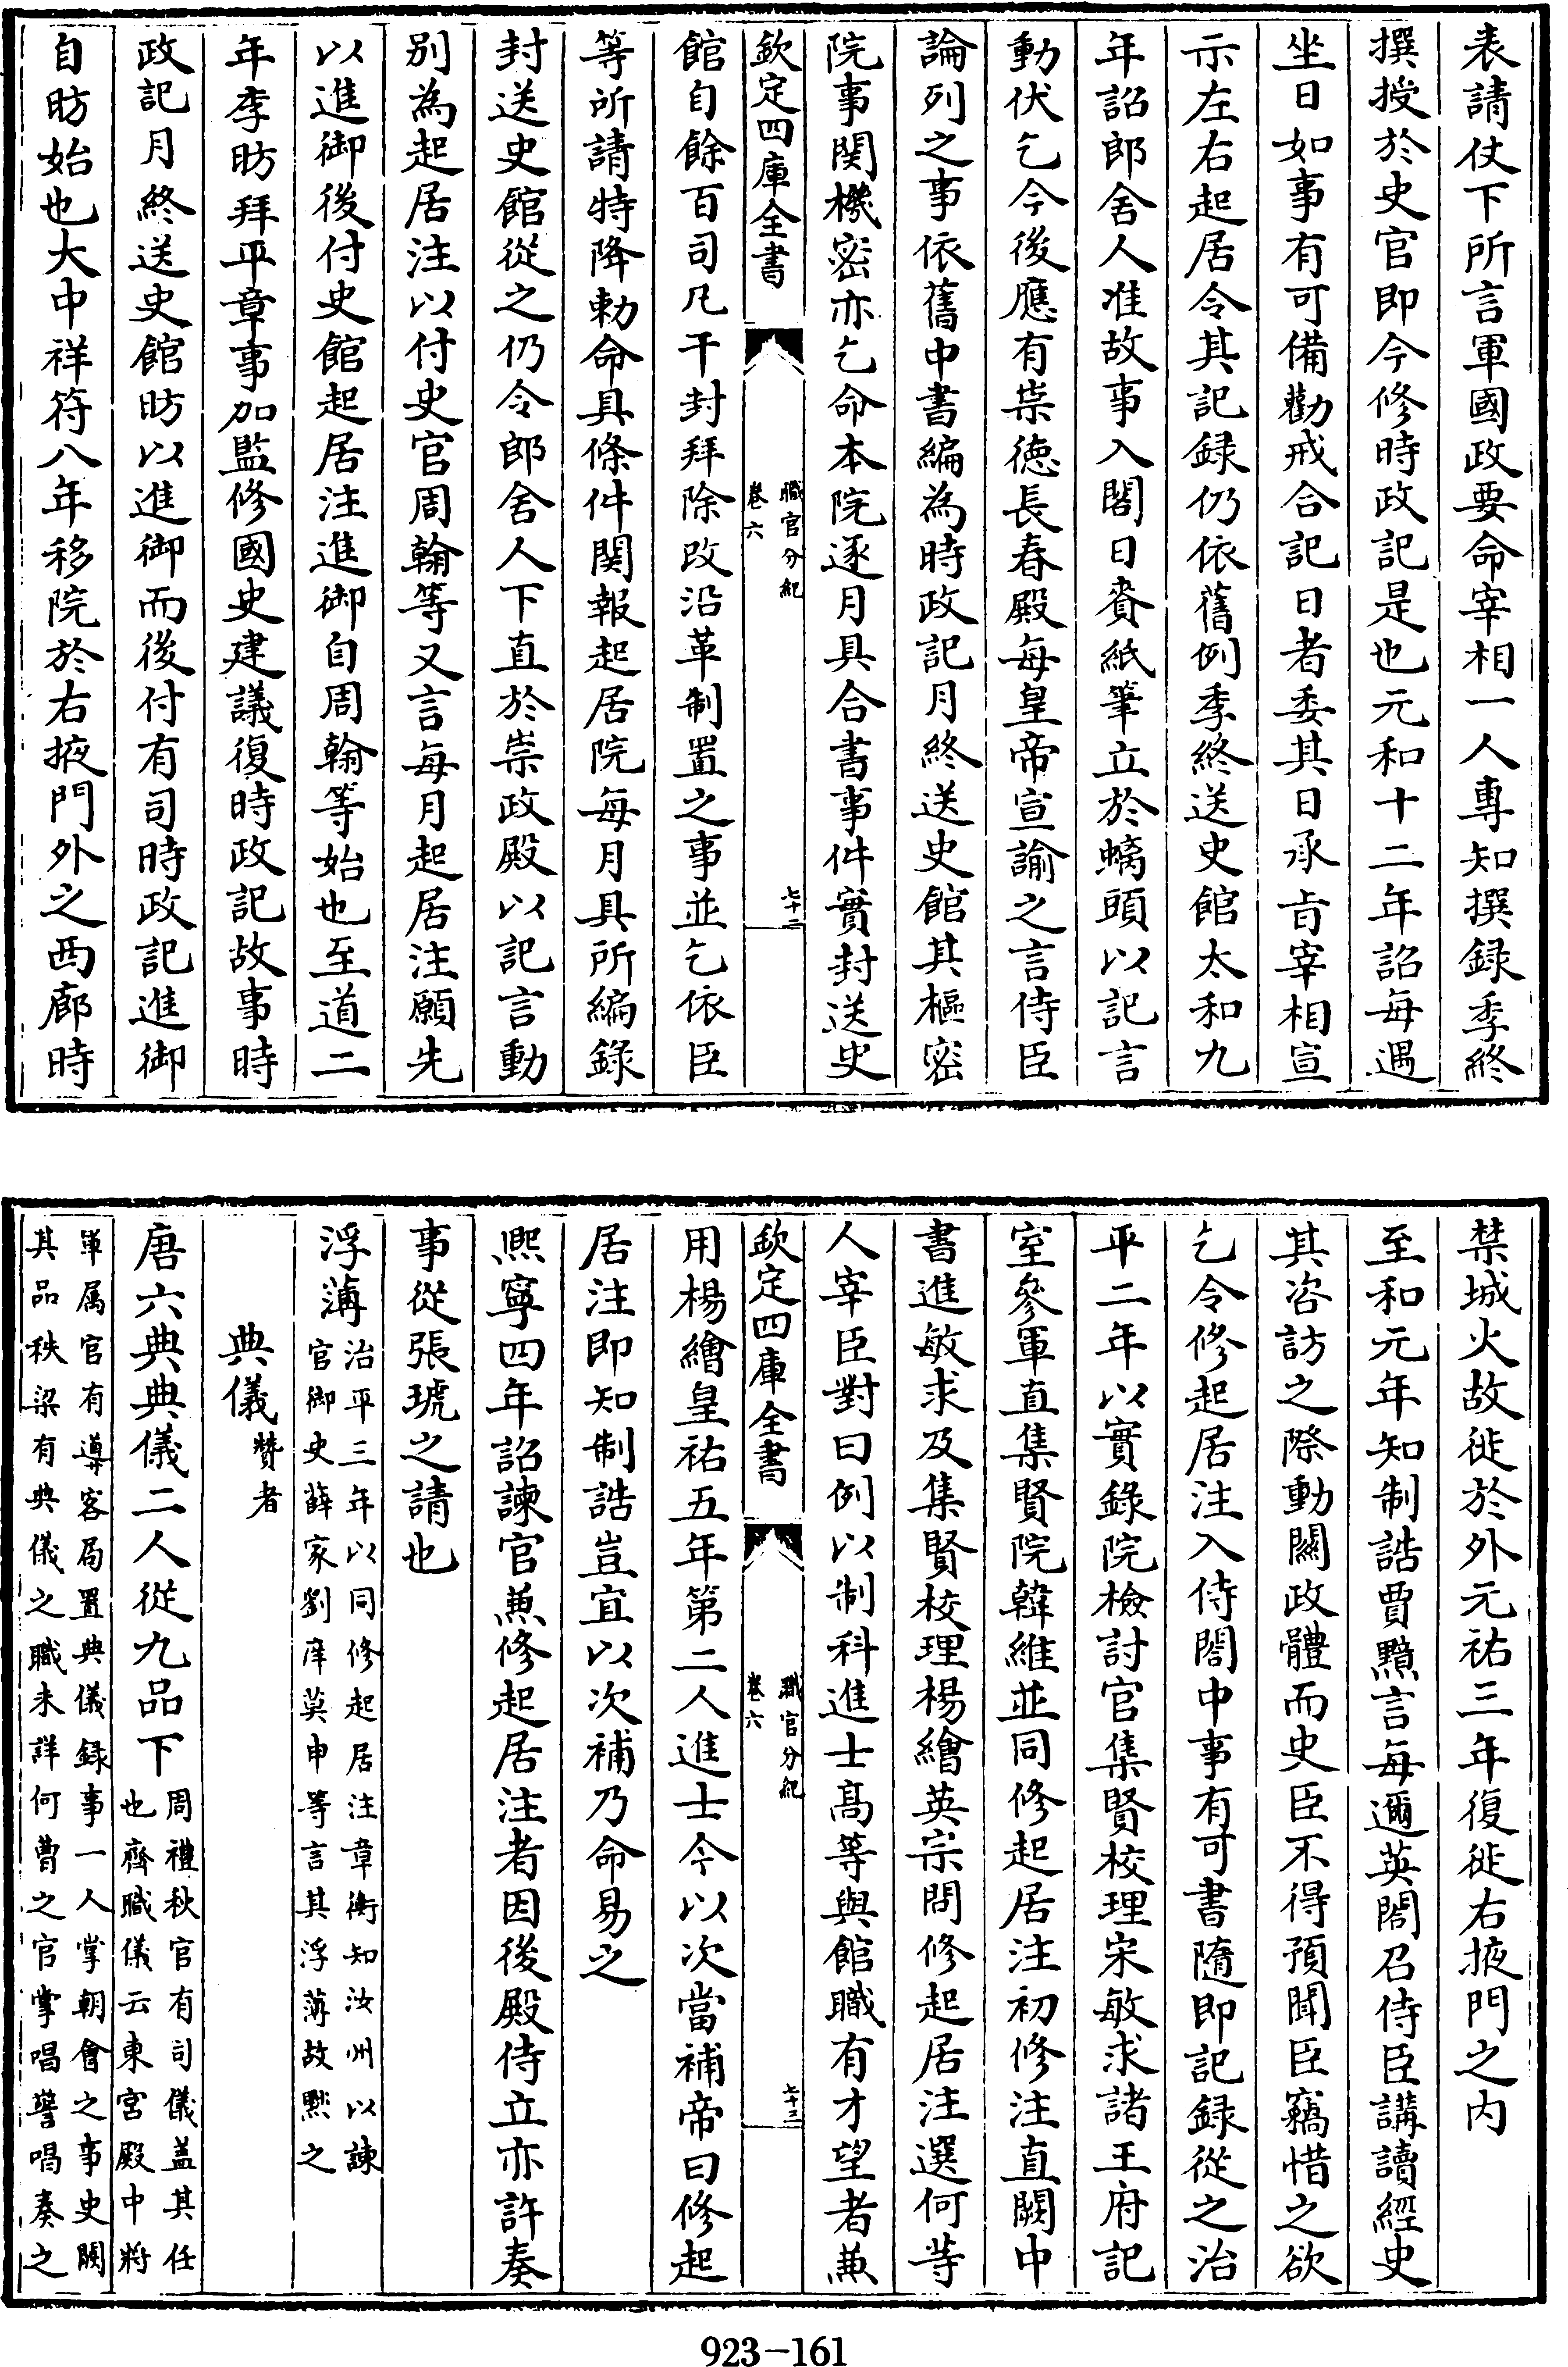 表請仗下所言軍國政要命宰相一人專知撰録季終
撰授於史官即今修時政記是也元和十二年詔每遇
坐日如事有可備勸戒合記日者委其日承㫖宰相宣
示左右起居令其記録仍依舊例季終送史館太和九
年詔郎舍人准故事入閤日賫紙筆立於螭頭以記言
動伏乞今後應有崇德長春殿每皇帝宣諭之言侍臣
論列之事依舊中書編為時政記月終送史館其樞密
院事関機密亦乞命本院逐月具合書事件實封送史
欽定四庫全書
職官分紀
卷六
七十二
館自餘百司凡干封拜除改沿革制置之事並乞依臣
等所請特降勅命具條件関報起居院每月具所編錄
封送史館從之仍令郎舍人下直於崇政殿以記言動
别為起居注以付史官周翰等又言每月起居注願先
以進御後付史館起居注進御自周翰等始也至道二
年李昉拜平章事加監修國史建議復時政記故事時
政記月終送史館昉以進御而後付有司時政記進御
自昉始也大中祥符八年移院於右掖門外之西廊時
禁城火故徙於外元祐三年復徙右掖門之内
至和元年知制誥賈黯言每邇英閤召侍臣講讀經史
其咨訪之際動關政體而史臣不得預聞臣竊惜之欲
乞令修起居注入侍閤中事有可書隨即記録從之治
平二年以實錄院檢討官集賢校理宋敏求諸王府記
室參軍直集賢院韓維並同修起居注初修注直闕中
書進敏求及集賢校理楊繪英宗問修起居注選何等
人宰臣對曰例以制科進士髙等與館職有才望者兼
欽定四庫全書
職官分紀
卷六
七十三
用楊繪皇祐五年第二人進士今以次當補帝曰修起
居注即知制誥豈宜以次補乃命易之
熈寧四年詔諫官兼修起居注者因後殿侍立亦許奏
事從張琥之請也
浮薄治平三年以同修起居注章衡知汝州以諫
官御史薛家劉庠莫申等言其浮薄故黜之
典儀贊者
唐六典典儀二人從九品下周禮秋官有司儀盖其任
也齊職儀云東宮殿中將
軍属官有導客局置典儀録事一人掌朝會之事史闕
其品秩梁有典儀之職未詳何曹之官掌唱警唱奏之
923-161